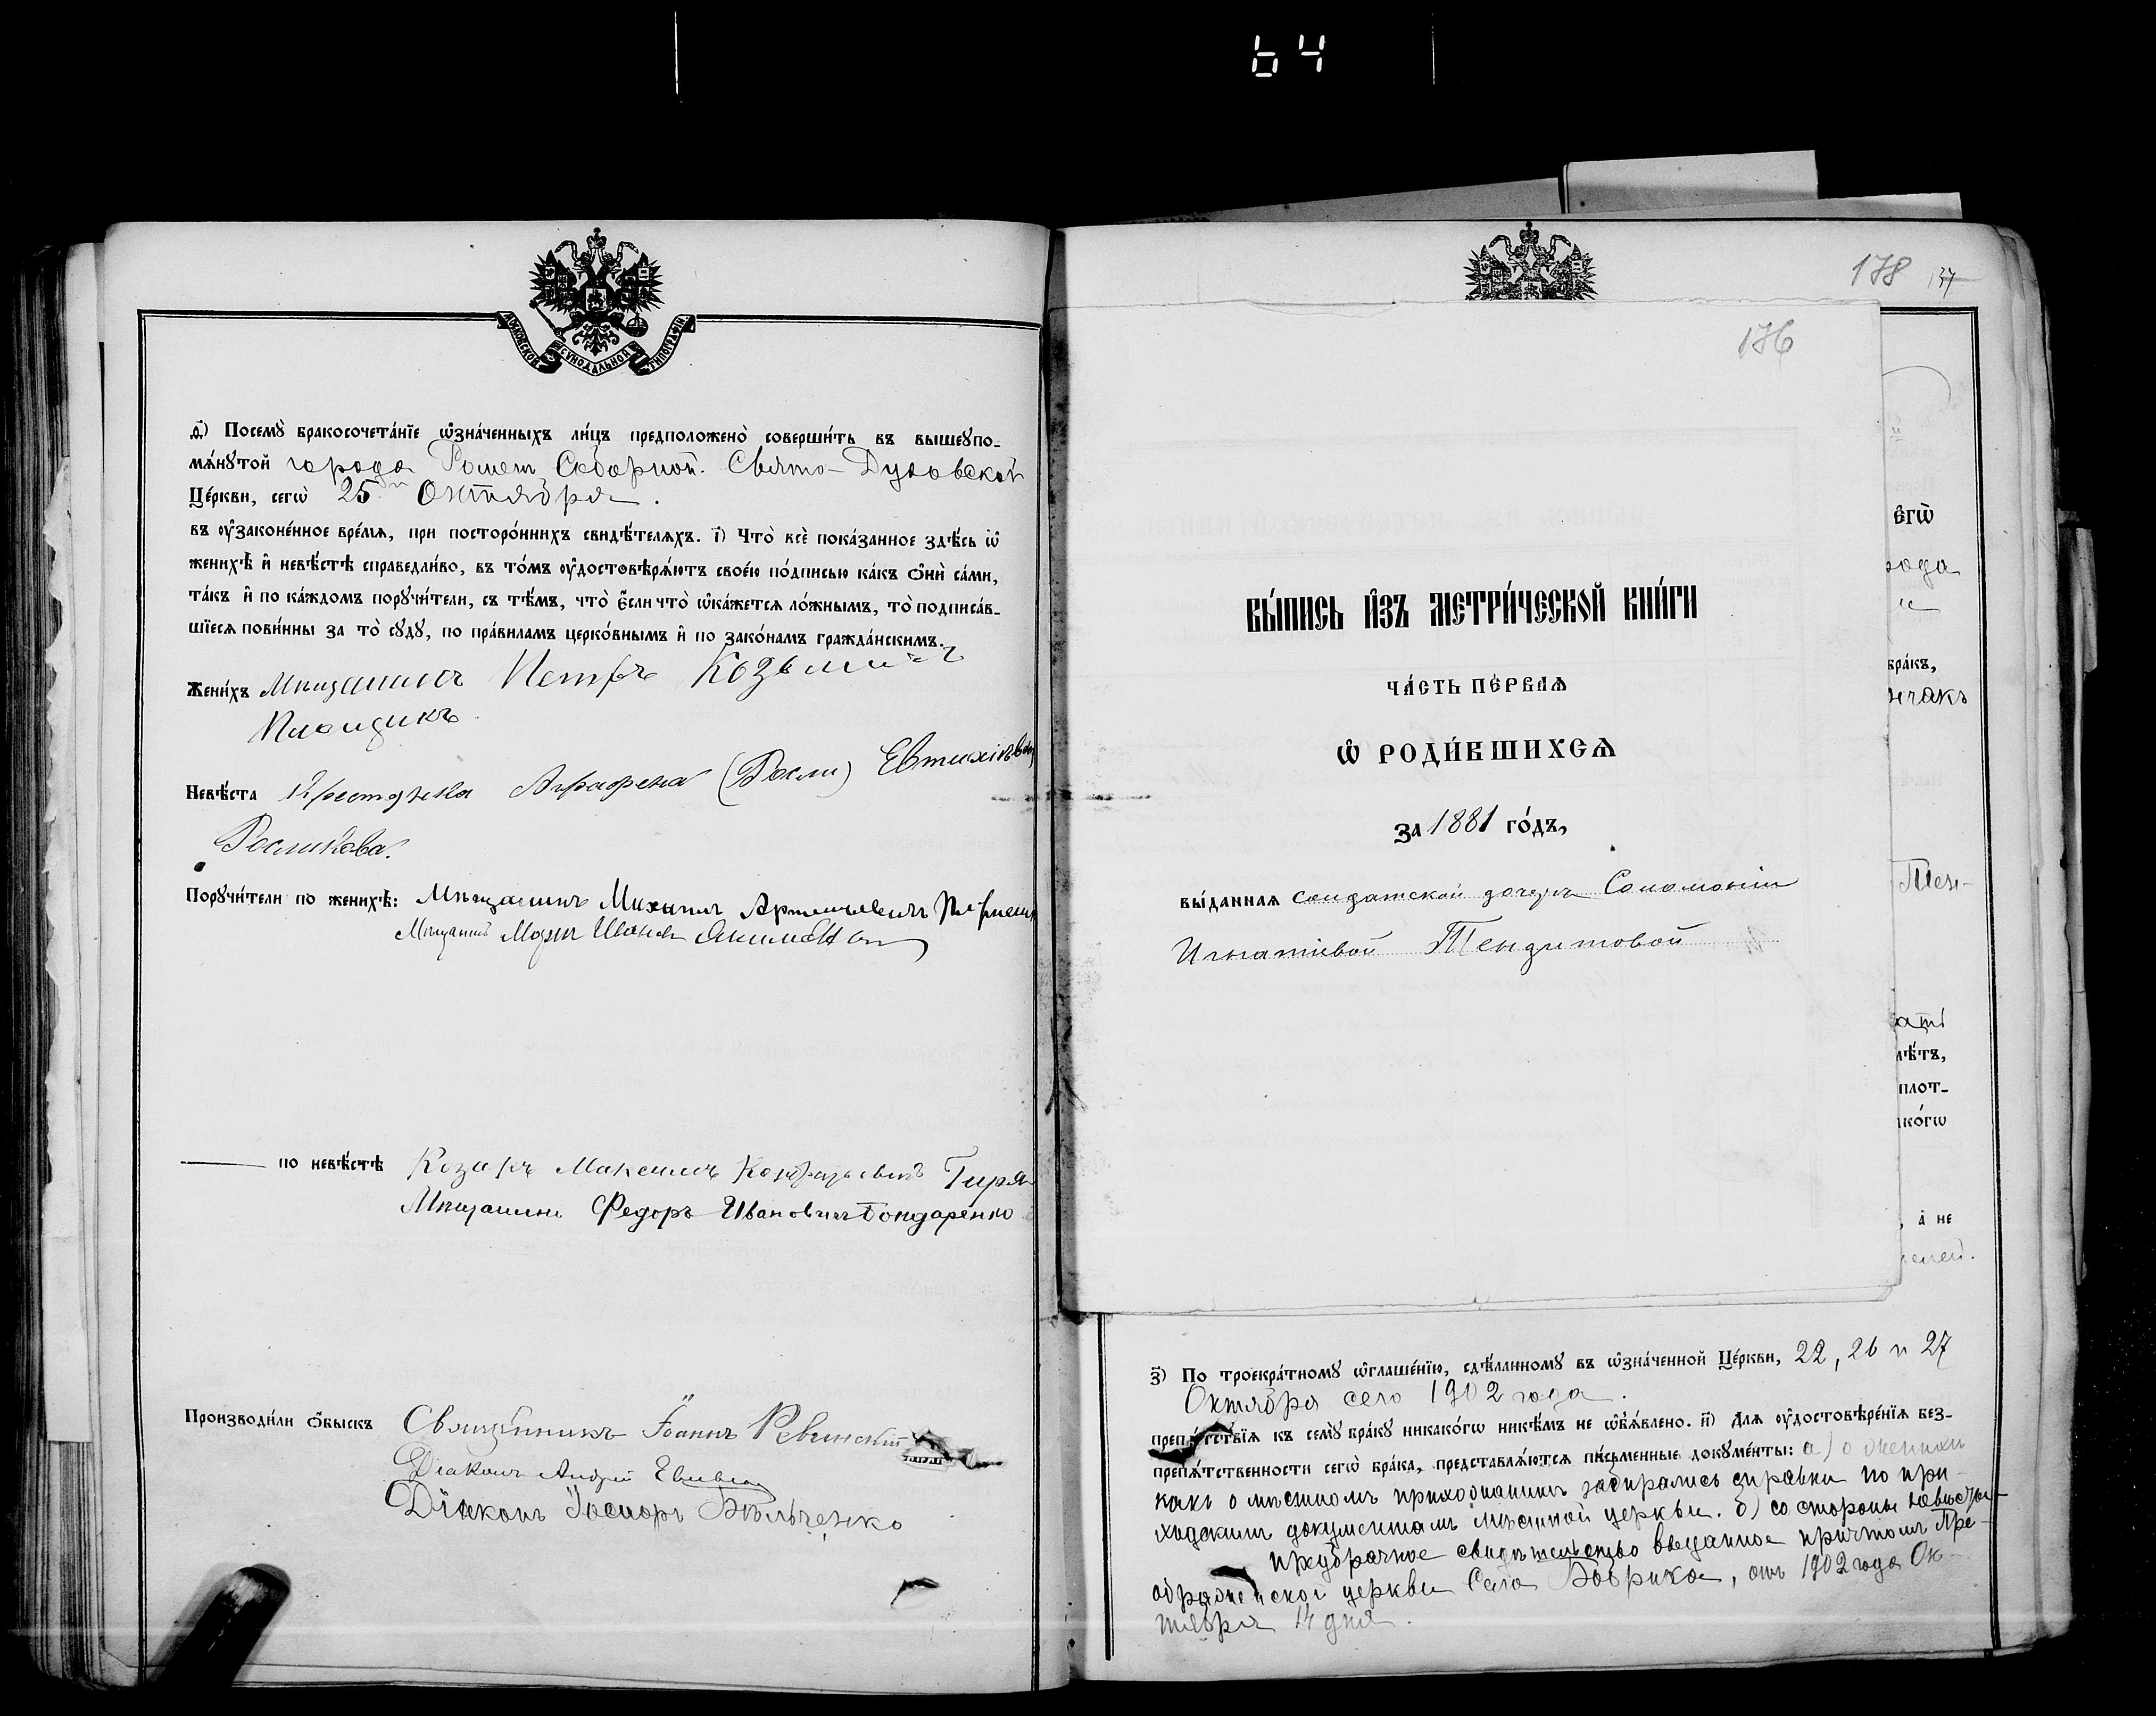 64
МОСКОВСКОЙ СѴНОДАЛЬНОЙ ТИПОГРАФІИ
д҃і) Посемꙋ̀ бракосочета́нїе ѡ҆зна́ченныхъ ли́цъ предположено̀ соверши́ть въ вышеꙋпо-
мѧ́нꙋтой города Ромен Соборной Свято-Духовской
Це́ркви, сегѡ̀ 25го Октября.
въ ᲂу҆законе́нное вре́мѧ, при посторо́ннихъ свидѣ́телѧхъ. і҃) Что̀ всѐ пока́занное здѣ́сь ѡ҆
женихѣ̀ и҆ невѣ́стѣ справедли́во, въ то́мъ ᲂу҆достовѣрѧ́ютъ свое́ю по́дписью ка́къ ѻ҆нѝ са́ми,
та́къ и҆ по ка́ждомъ порꙋчи́тели, съ тѣ́мъ, что̀ є҆́сли что̀ ѡ҆ка́жетсѧ ло́жнымъ, то̀ подписа́в-
шїесѧ пови́нны за то̀ сꙋдꙋ̀, по пра́виламъ церко́внымъ и҆ по зако́намъ гражда́нскимъ.
Жени́хъ Мѣщанинъ Петръ Козьмич
Плащикъ
Невѣ́ста Крестянка Аграфена Евтихіева
Росликова.
Порꙋчи́тели по женихѣ̀: Мѣщанинъ Михаилъ Артемьевичъ
Мѣщанинъ Марк Иванов
по невѣ́стѣ Козакъ Максимъ Кондратьевичъ Гиря
Мѣщанинъ Федоръ Ивановичъ Бондаренко
Производи́ли ѻ҆́быскъ Священникъ Іоаннъ Ревинскій
Діаконъ Андрей
Діаконъ Іосифъ Бѣльченко
178 137
176
ВЫ́ПИСЬ И҆ЗЪ МЕТРИ́ЧЕСКОЙ КНИ́ГИ
ЧА́СТЬ ПЕ́РВАѦ
Ѡ҆ РОДИ́ВШИХСѦ
За 1881 го́дъ,
вы́даннаѧ солдатской дочери Соломоніи
Игнатіевой Тендитовой
є҆гѡ̀
рода
бра́къ,
нчакъ
Тен-
лѣ́тъ,
плот-
ко́гѡ
, а҆ не
з҃) По троекра́тномꙋ ѡ҆глаше́нїю, сдѣ́ланномꙋ въ ѡ҆зна́ченной Це́ркви, 22, 26 и 27
Октября сего 1902 года.
препѧ́тствїѧ къ семꙋ̀ бра́кꙋ никако́гѡ никѣ́мъ не ѡ҆б̾ѧ́влено. и҃) Длѧ ᲂу҆достовѣре́нїѧ без-
препѧ́тственности сегѡ̀ бра́ка, представлѧ́ютсѧ пи́сьменные докꙋме́нты: а) о женихѣ
какъ о мѣстномъ прихожанинѣ забирались справки по при-
ходскимъ документамъ мѣстной церкви. б) со стороны невѣсты-
предбрачное свидѣтельство выданное причтомъ Пре-
ображенской церкви села Бобрика, отъ 1902 года Ок-
тября 14 дня.